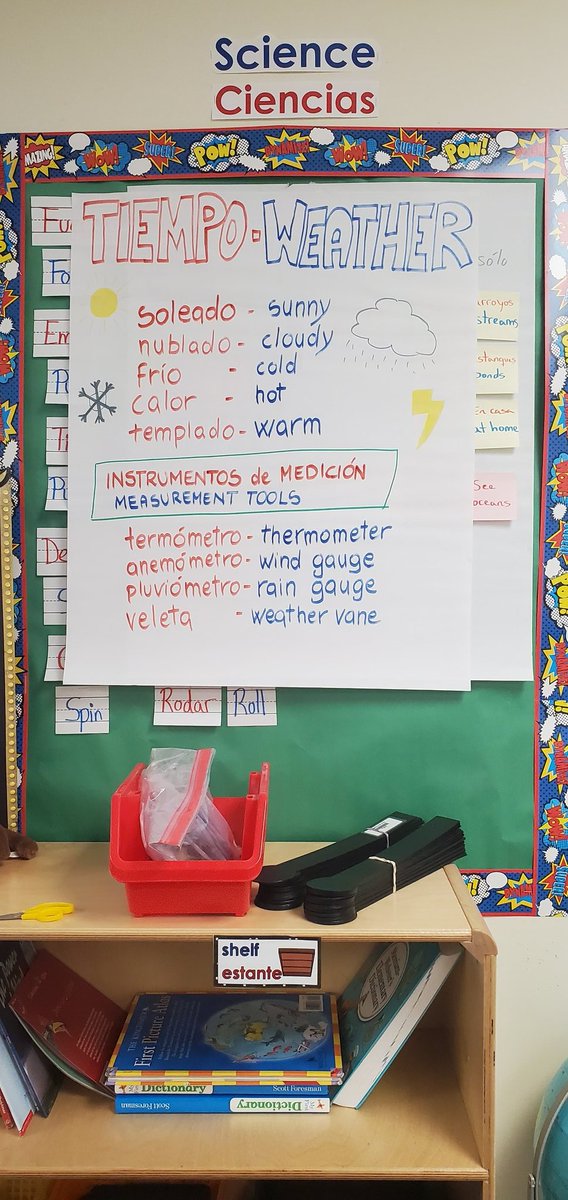 Science
Ciencias
AMAZING!
WOW!
SUPER!
POW!
WOW!
SUPER!
POW!
TIEMPO - WEATHER
soleado - sunny
nublado - cloudy
frío - cold
calor - hot
templado - warm
INSTRUMENTOS de MEDICIÓN
MEASUREMENT TOOLS
termómetro - thermometer
anemómetro - wind gauge
pluviómetro - rain gauge
veleta - weather vane
sólo
arroyos
streams
estanques
ponds
En casa
at home
See
oceans
Spin
Rodar
Roll
shelf
estante
First Picture Atlas
Dictionary
Scott Foresman
Scott Foresman
Dictionary